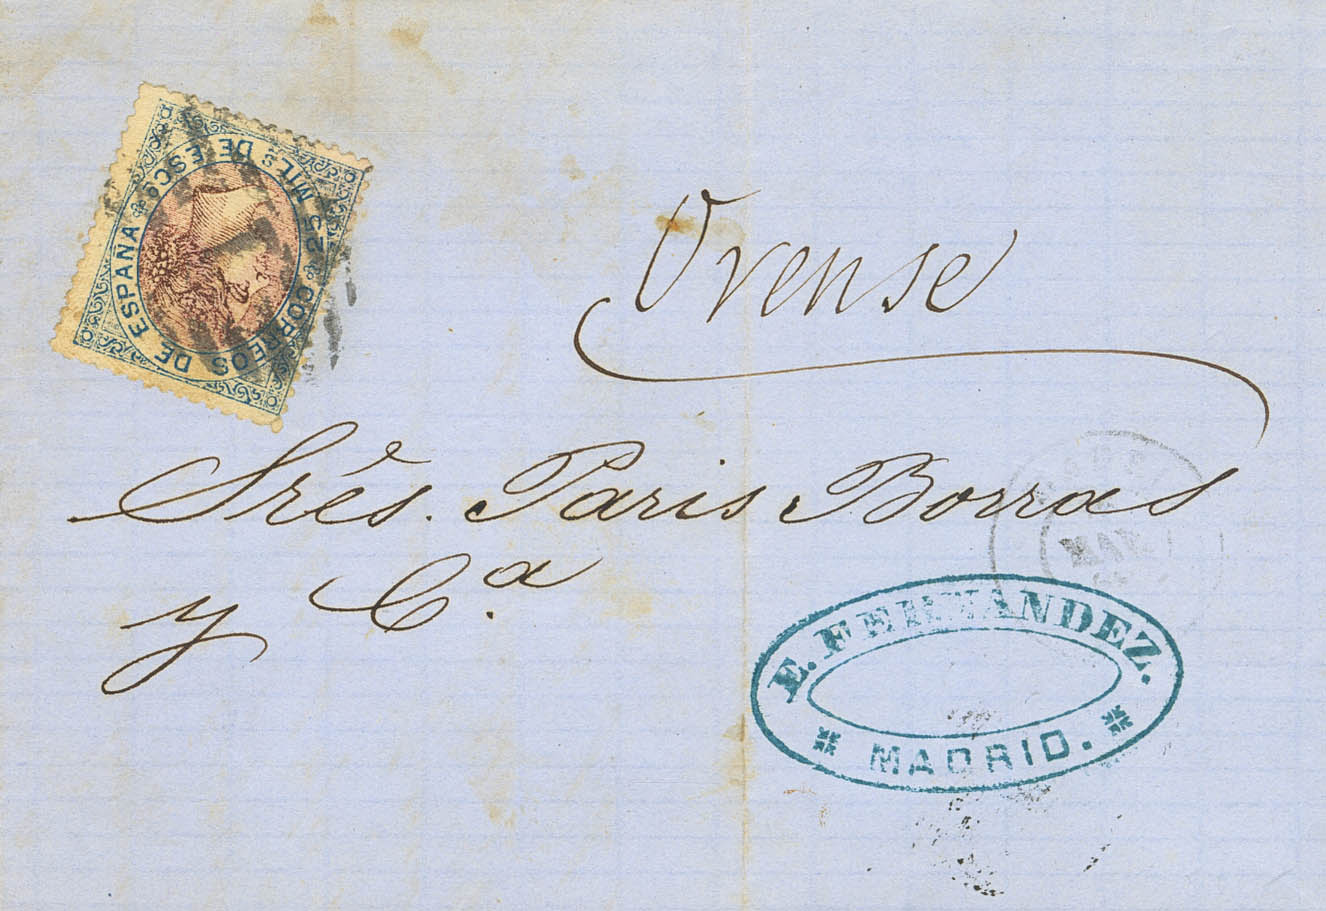 CORREOS DE ESPAÑA 25 MILS DE ESCO
Orense
Srēs. Paris Borras
y C.a
MADRID
MAY
E. FERNANDEZ.
MADRID.